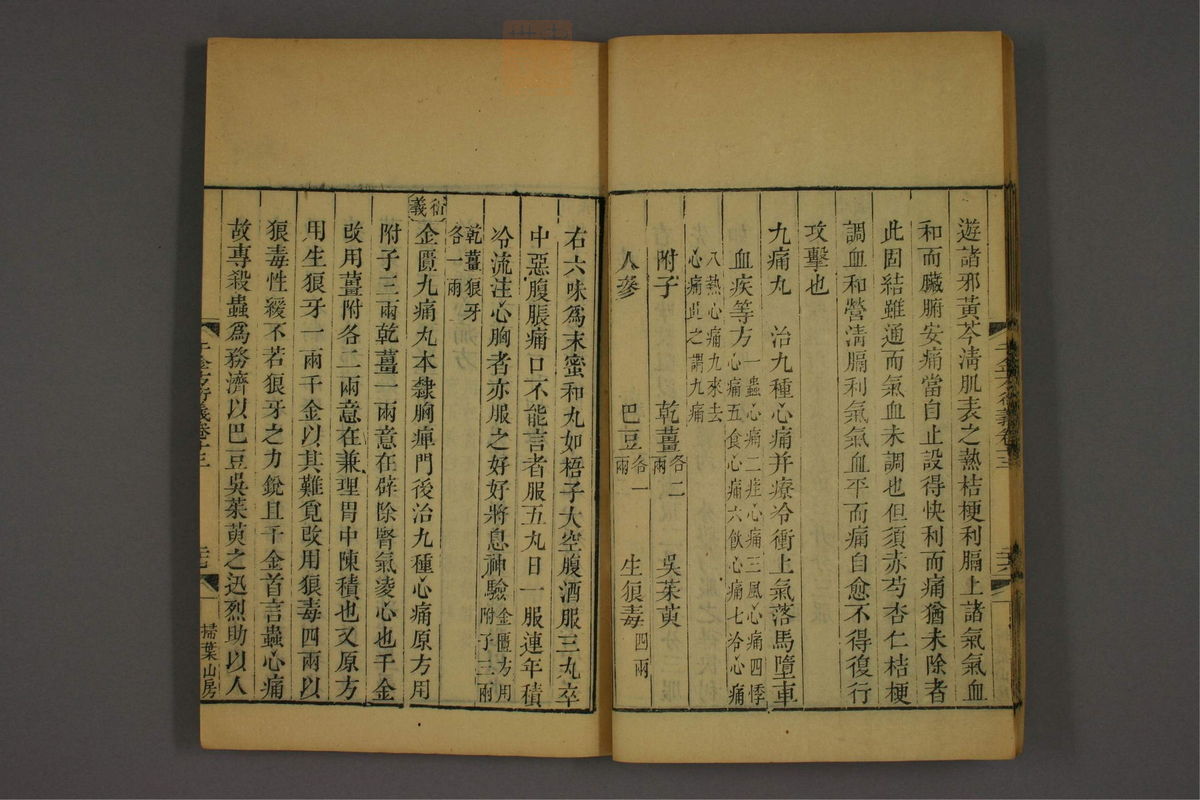 遊諸邪黃芩淸肌表之熱桔梗利膈上諸氣氣血
和而臟腑安痛當自止設得快利而痛猶未除者
此固結雖通而氣血未調也但須赤芍杏仁桔梗
調血和營淸膈利氣氣血平而痛自愈不得復行
攻擊也
九痛丸　治九種心痛并療冷衝上氣落馬墮車
血疾等方一蟲心痛二疰心痛三風心痛四悸
心痛五食心痛六飮心痛七冷心痛
八熱心痛九來去
心痛此之謂九痛
附子　乾薑各二兩　吳茱萸
人參　巴豆各一兩　生狼毒四兩
右六味爲末蜜和丸如梧子大空腹酒服三丸卒
中惡腹脹痛口不能言者服五丸日一服連年積
冷流注心胸者亦服之好好將息神驗金匱方用
附子三兩
乾薑狼牙
各一兩
衍義
金匱九痛丸本隸胸痺門後治九種心痛原方用
附子三兩乾薑一兩意在辟除腎氣凌心也千金
改用薑附各二兩意在兼理胃中陳積也又原方
用生狼牙一兩千金以其難覓改用狼毒四兩以
狼毒性緩不若狼牙之力銳且千金首言蟲心痛
故專殺蟲爲務濟以巴豆吳茱萸之迅烈助以人
千金方衍義卷十三
掃葉山房